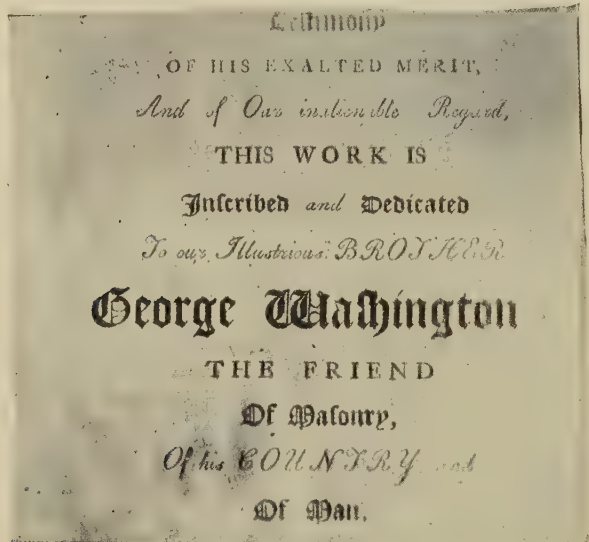 Teſtimony
OF HIS EXALTED MERIT,
And of Our inalienable Regard,
THIS WORK IS
Inſcribed and Dedicated
To our Illustrious BROTHER
George Waſhington
THE FRIEND
Of Maſonry,
Of his COUNTRY and
Of Man.